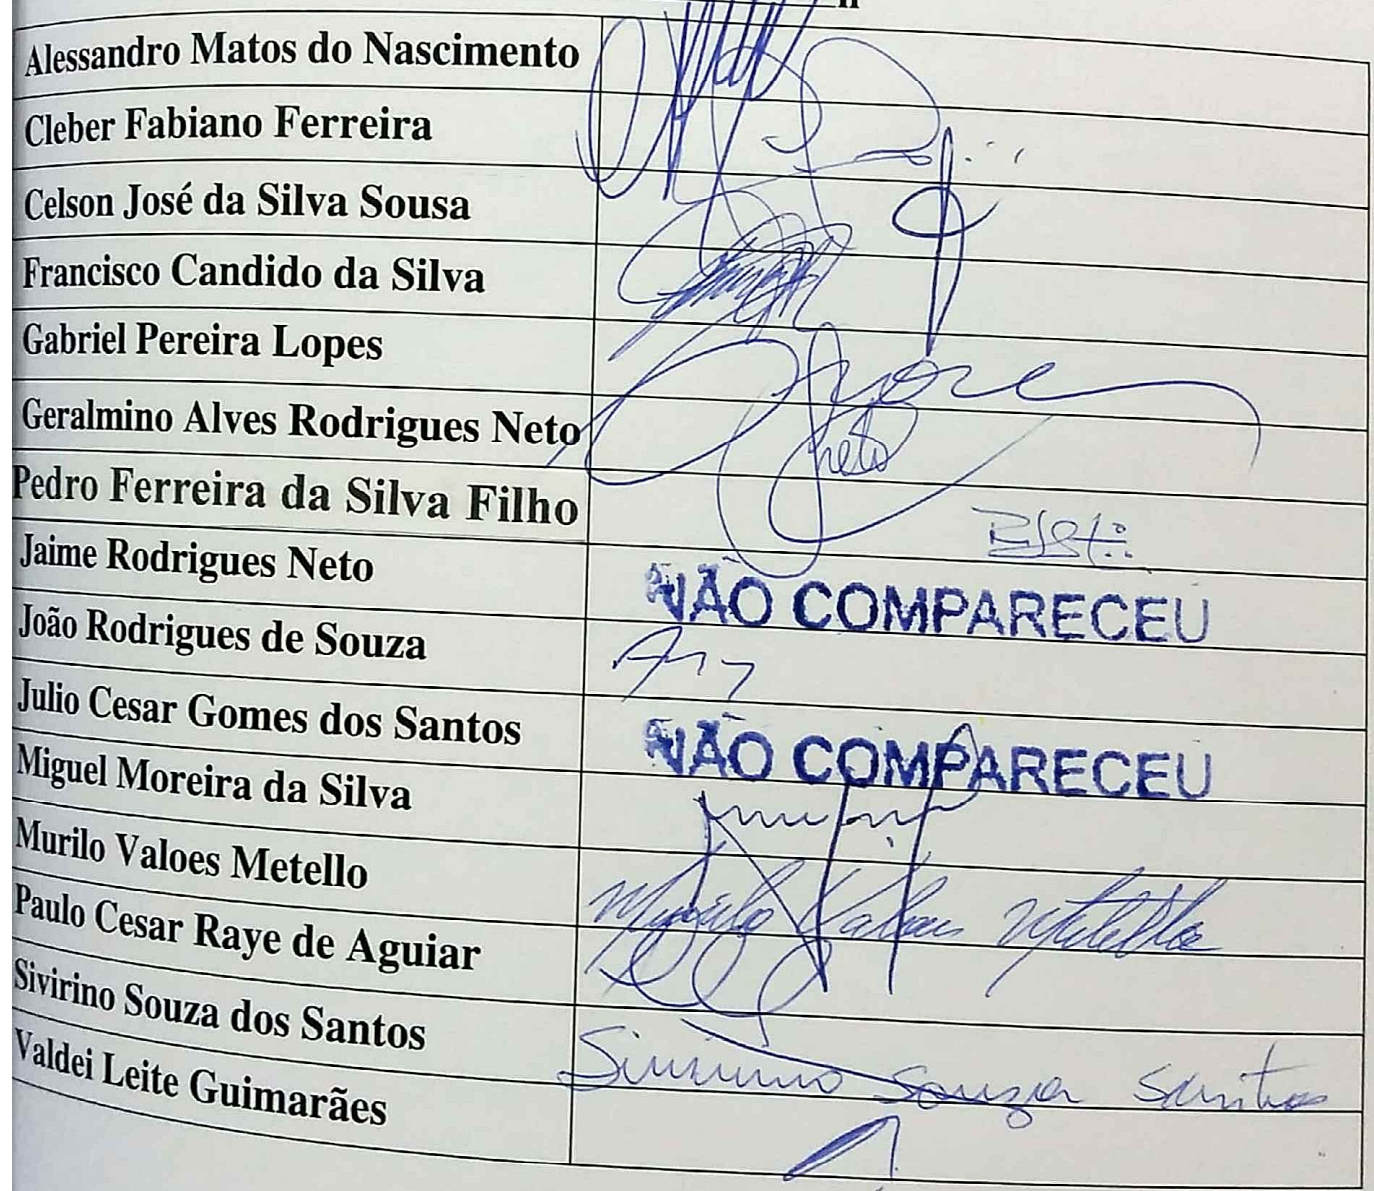 Alessandro Matos do Nascimento
Cleber Fabiano Ferreira
Celson José da Silva Sousa
Francisco Candido da Silva
Gabriel Pereira Lopes
Geralmino Alves Rodrigues Neto
Neto
Pedro Ferreira da Silva Filho
Jaime Rodrigues Neto
NÃO COMPARECEU
João Rodrigues de Souza
Julio Cesar Gomes dos Santos
NÃO COMPARECEU
Miguel Moreira da Silva
Murilo Valoes Metello
Murilo Valoes Metello
Paulo Cesar Raye de Aguiar
Sivirino Souza dos Santos
Sivirino Souza Santos
Valdei Leite Guimarães